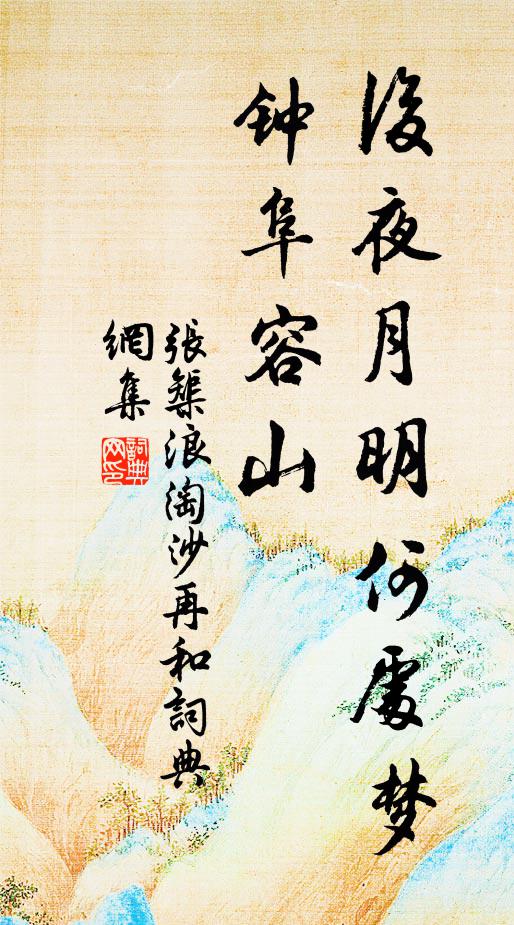 後夜月明何處梦
钟阜容山
張榘浪淘沙再和詞典
網集
詞典
网印